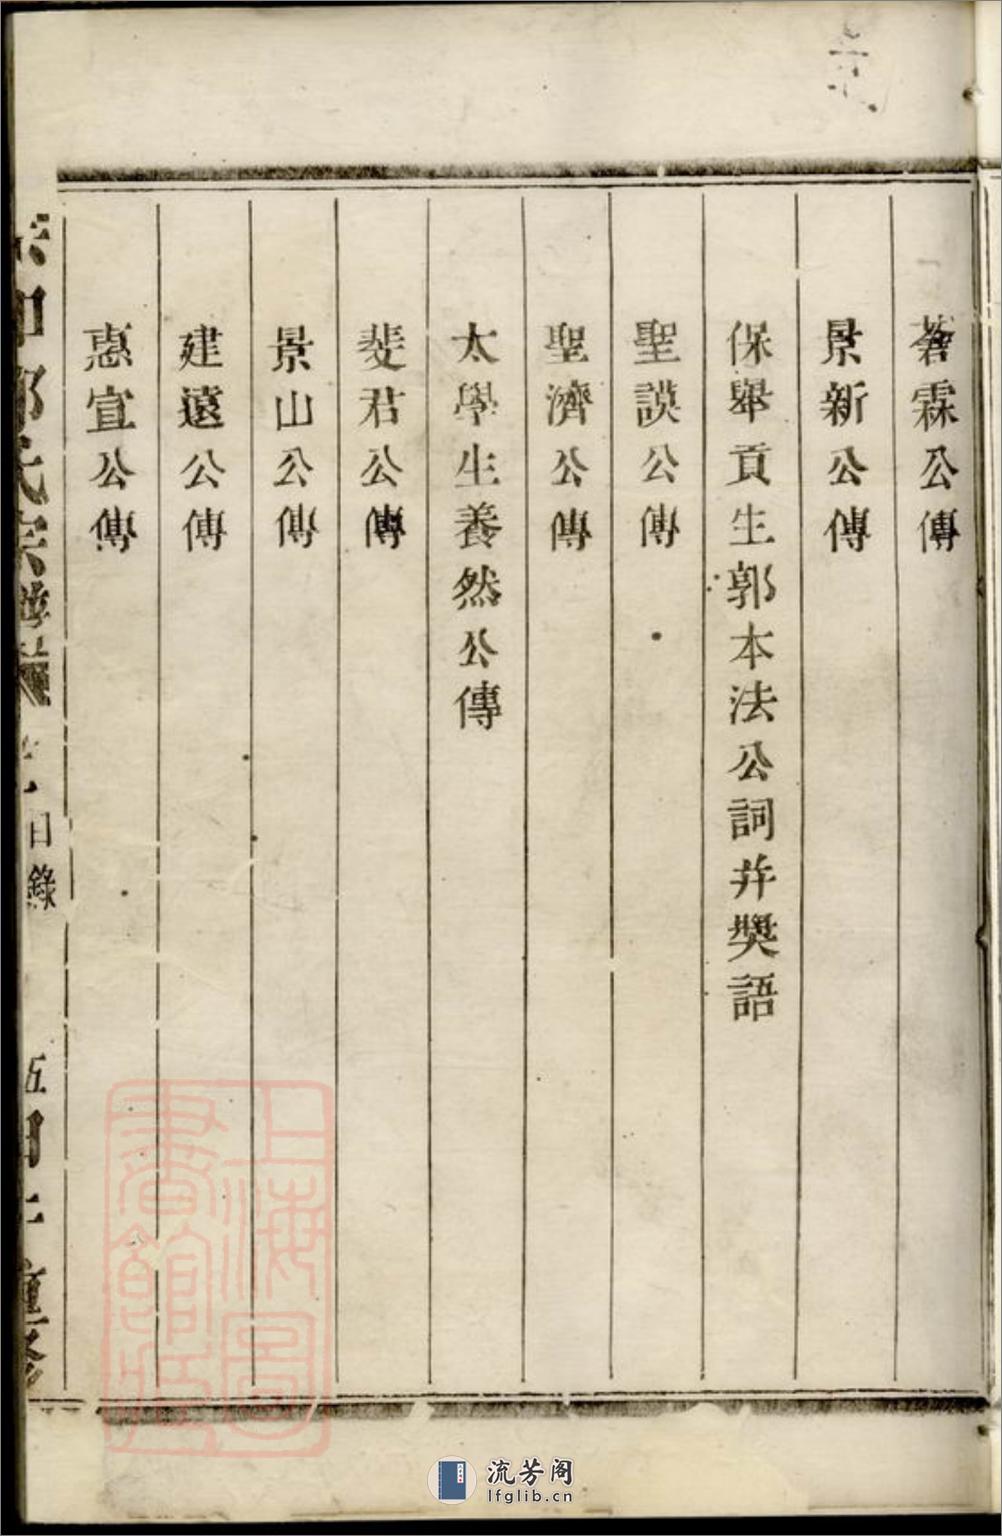 蒼霖公傳
景新公傳
保舉貢生郭本法公詞并獎語
聖謨公傳
聖濟公傳
太學生養然公傳
斐君公傳
景山公傳
建遠公傳
惠宣公傳
郭氏宗譜
目錄
五
重修
上海圖書館藏
流芳阁
lfglib.cn